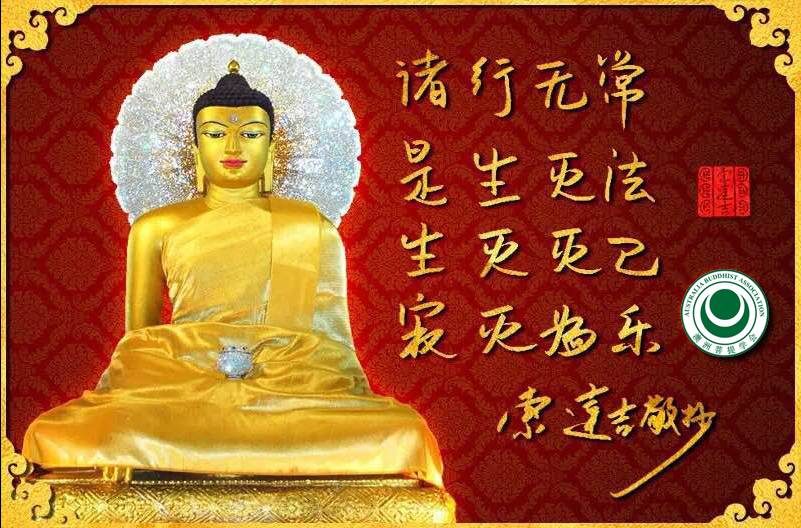 诸行无常
是生灭法
生灭灭已
寂灭为乐
索達吉敬抄
索达吉
AUSTRALIA BUDDHIST ASSOCIATION
澳洲菩提学会